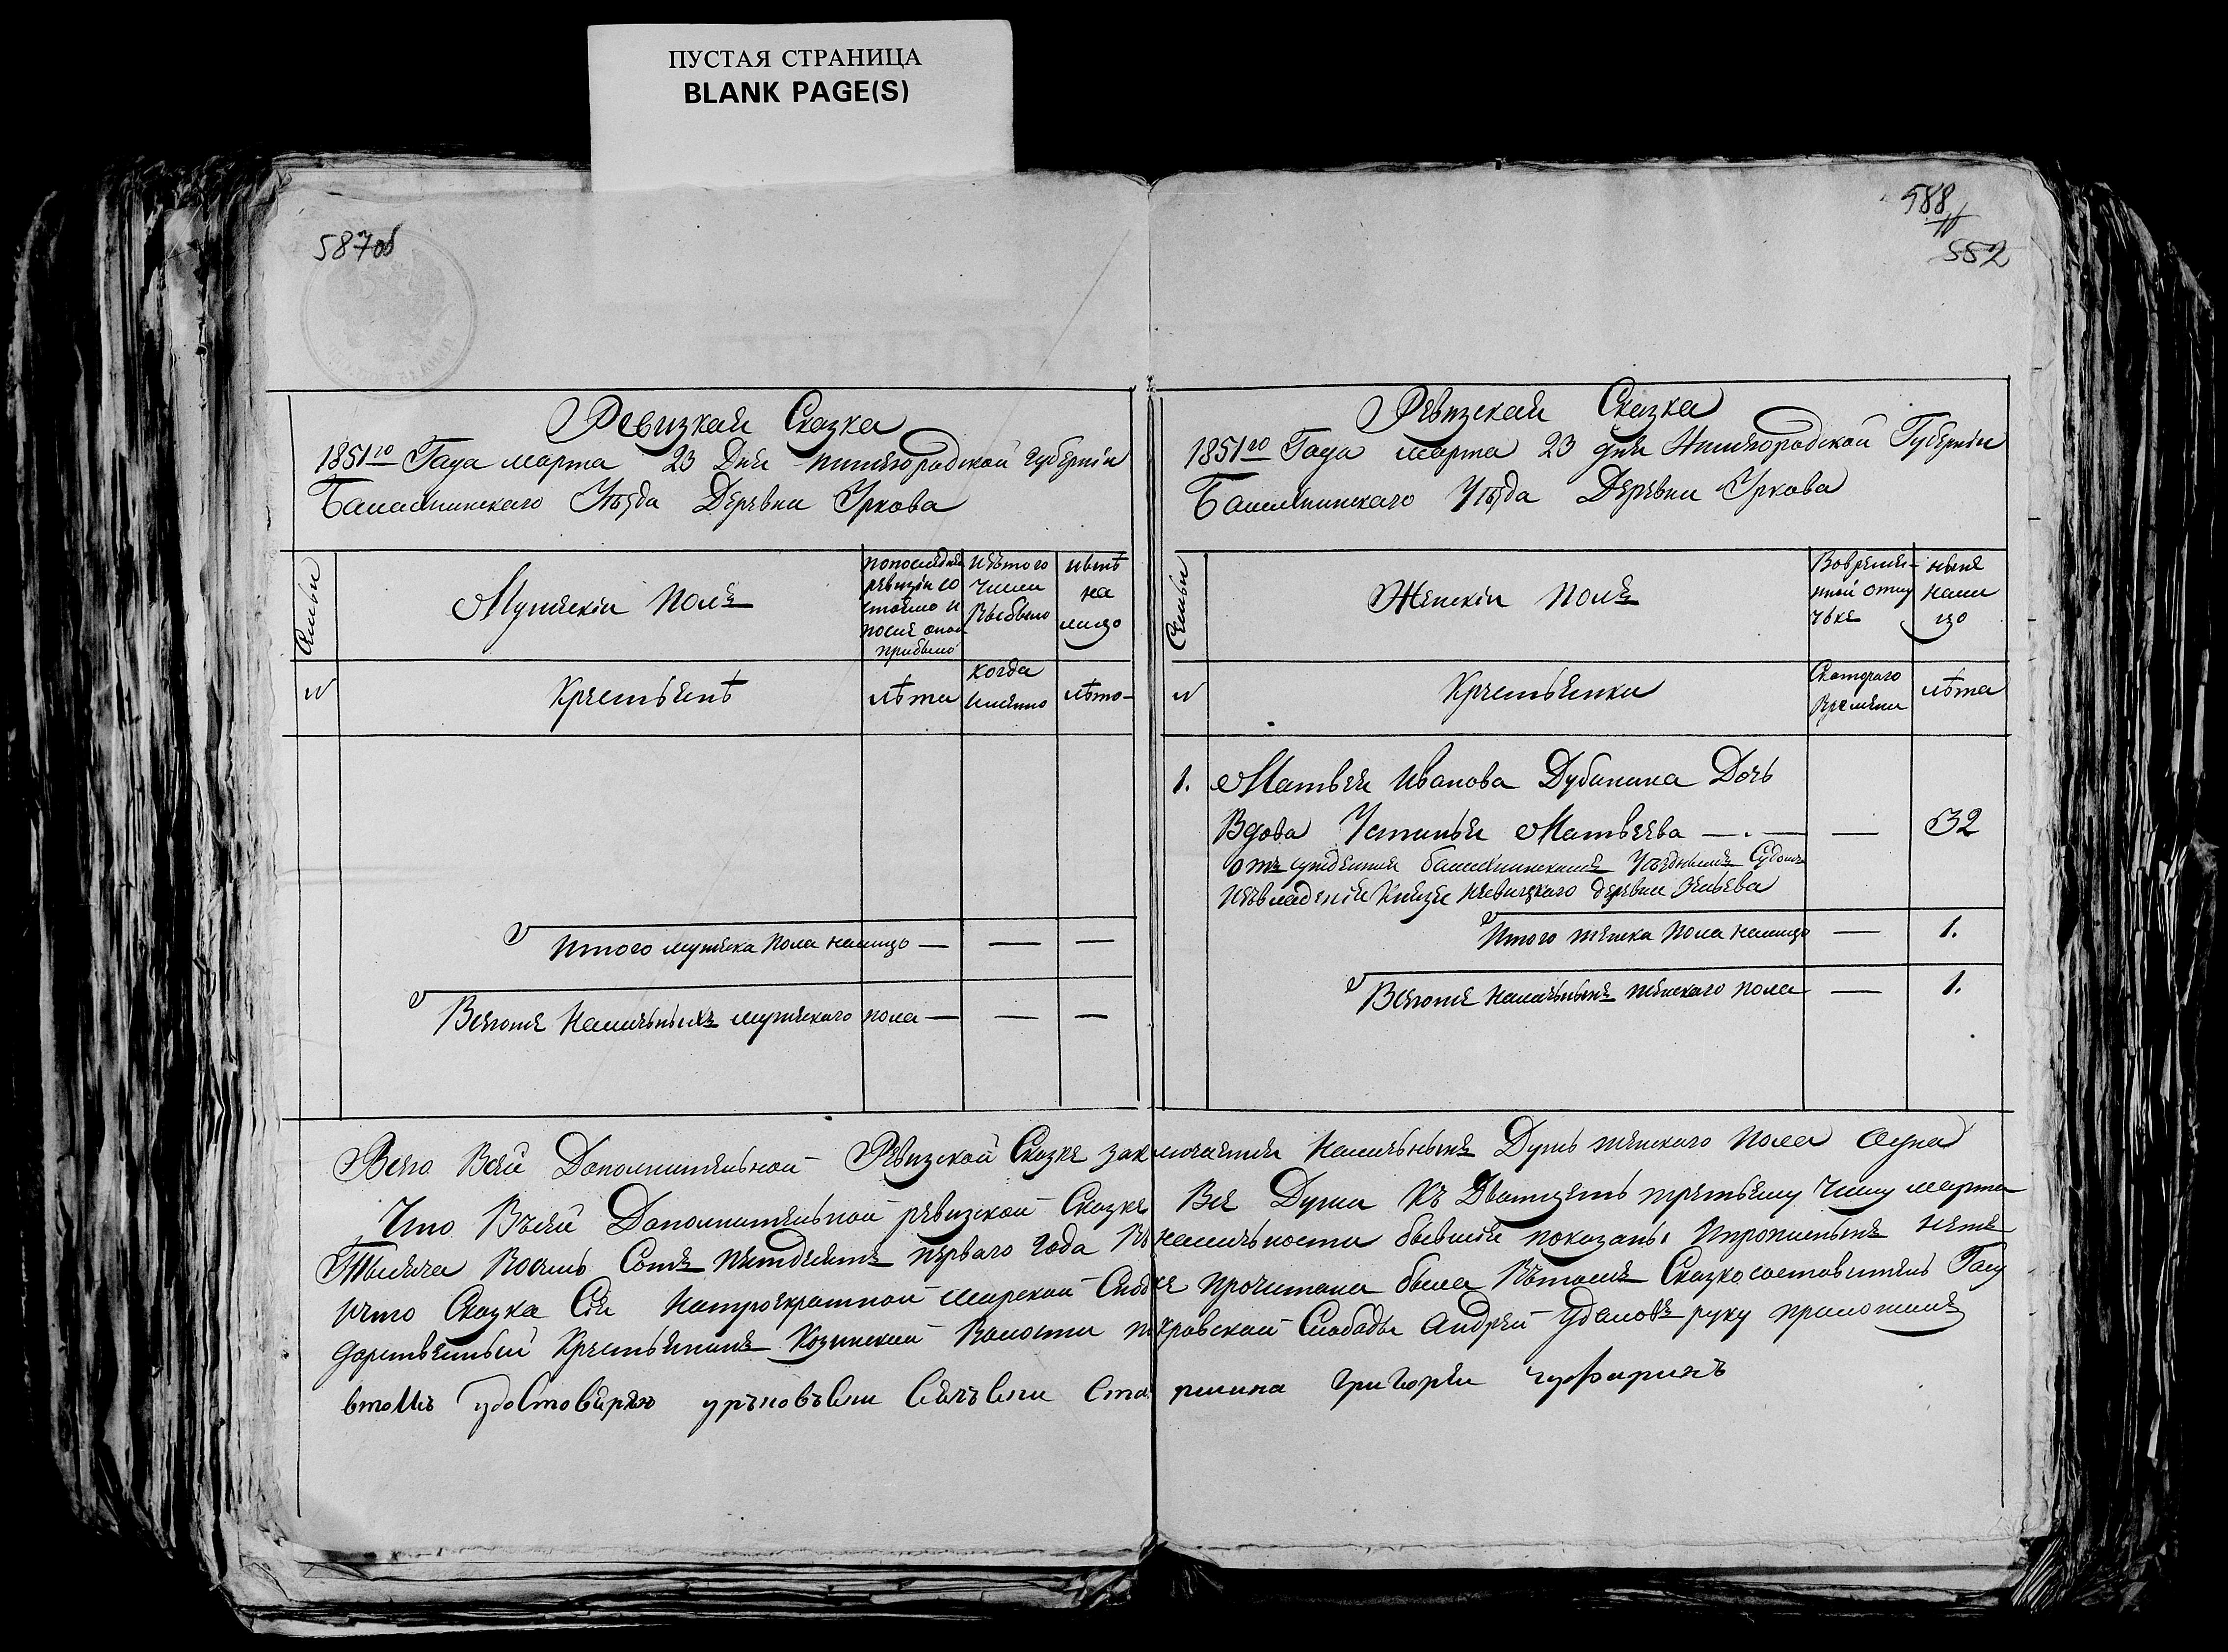 ПУСТАЯ СТРАНИЦА
BLANK PAGE(S)
587об
Ревизкая Сказка
1851го Года марта 23 Дня нижегородской губернiи
Балахнинскаго Уѣзда Деревни Уркова
Семьи
Мужескiй Полъ
попоследней
ревизiи со
стояло и
после оной
прибыло
Изътого
числа
Выбыло
нынѣ
на
лицо
N
Крестьянѣ
лѣта
когда
имянно
лѣто
Итого мужеска Пола налицо — — —
Всегоже Наличьныхъ мужескаго пола — — —
588
552
Ревизская Сказка
1851го Года марта 23 дня Нижегородской Губернiи
Балахнинскаго Уѣзда Деревни Уркова
Семьи
Женскiй Полъ
Вовремян-
ной отлу
чьке
ныне
нали
цо
N
Крестьянки
Скотораго
Времяни
лѣта
1. Матвея Иванова Дубинина Дочь
Вдова Устинья Матвеева — . — — 32
отъ сужденная балахнинскимъ Уѣзднымъ Судомъ
Изъвладенiя Князя деревни
Итого женска Пола налицо — 1.
Всегоже Наличьныхъ женскаго пола — 1.
Всего Всей Дополнительной Ревизской Сказке заключается Наличьныхъ Душь женскаго Пола Одна
Что Въсей Дополнительной ревизской Сказке Все Души Къ Дватцеть третьему Числу марта
Тысяча Восемь Сотъ пятдесятъ перваго года Въналичьности бывшiя показаны Ипрописныхъ нетъ
Ичто Сказка Сiя Натроекратной мирской Сходке прочитана была Вътомъ Сказкосоставитель Госу
дарственный Крестьянинъ Козинской Волости покровской Слободы Андрей Удаловъ руку приложилъ
втомъ удостоверяю старшина григорей чуфаринъ